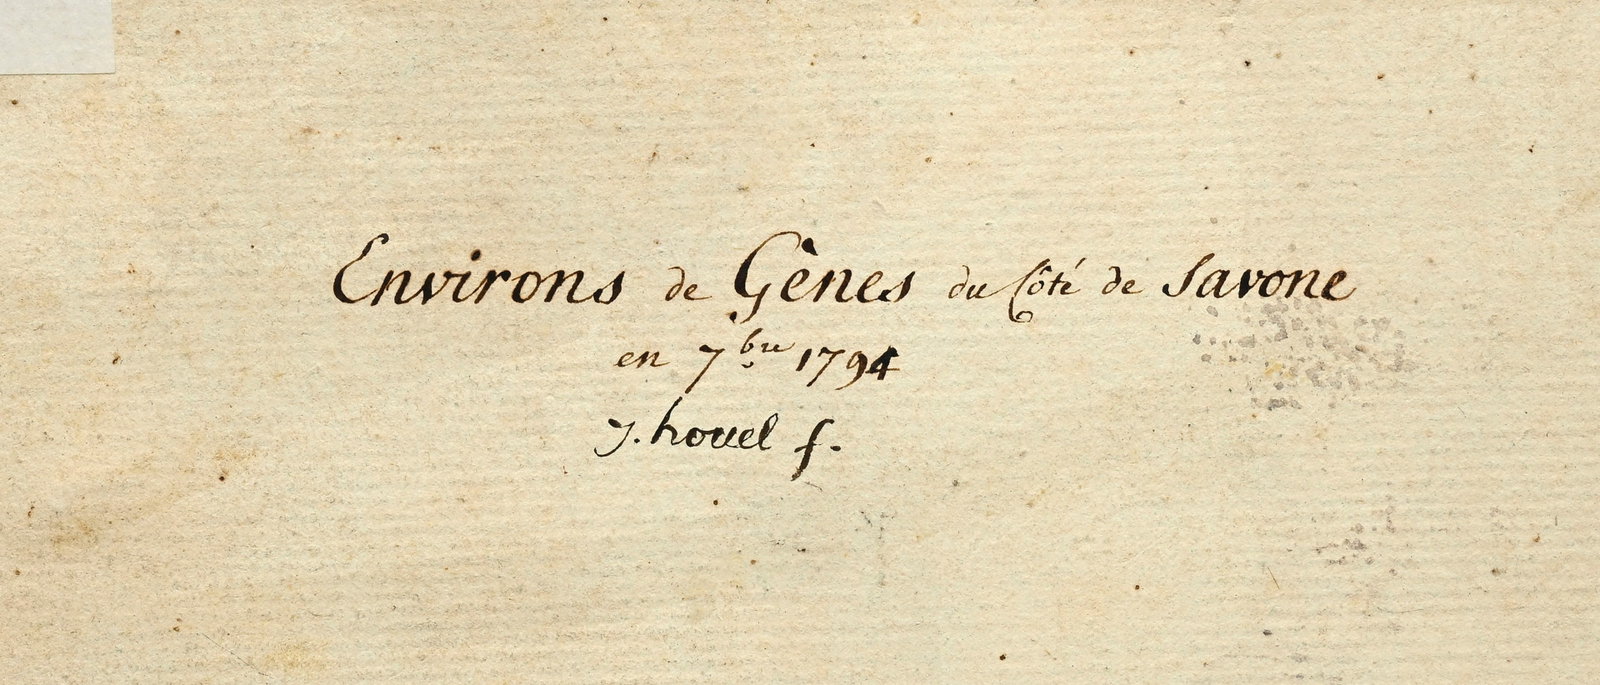 Environs de Gènes du Côté de Savone
en 7.bre 1794
J. houel f.